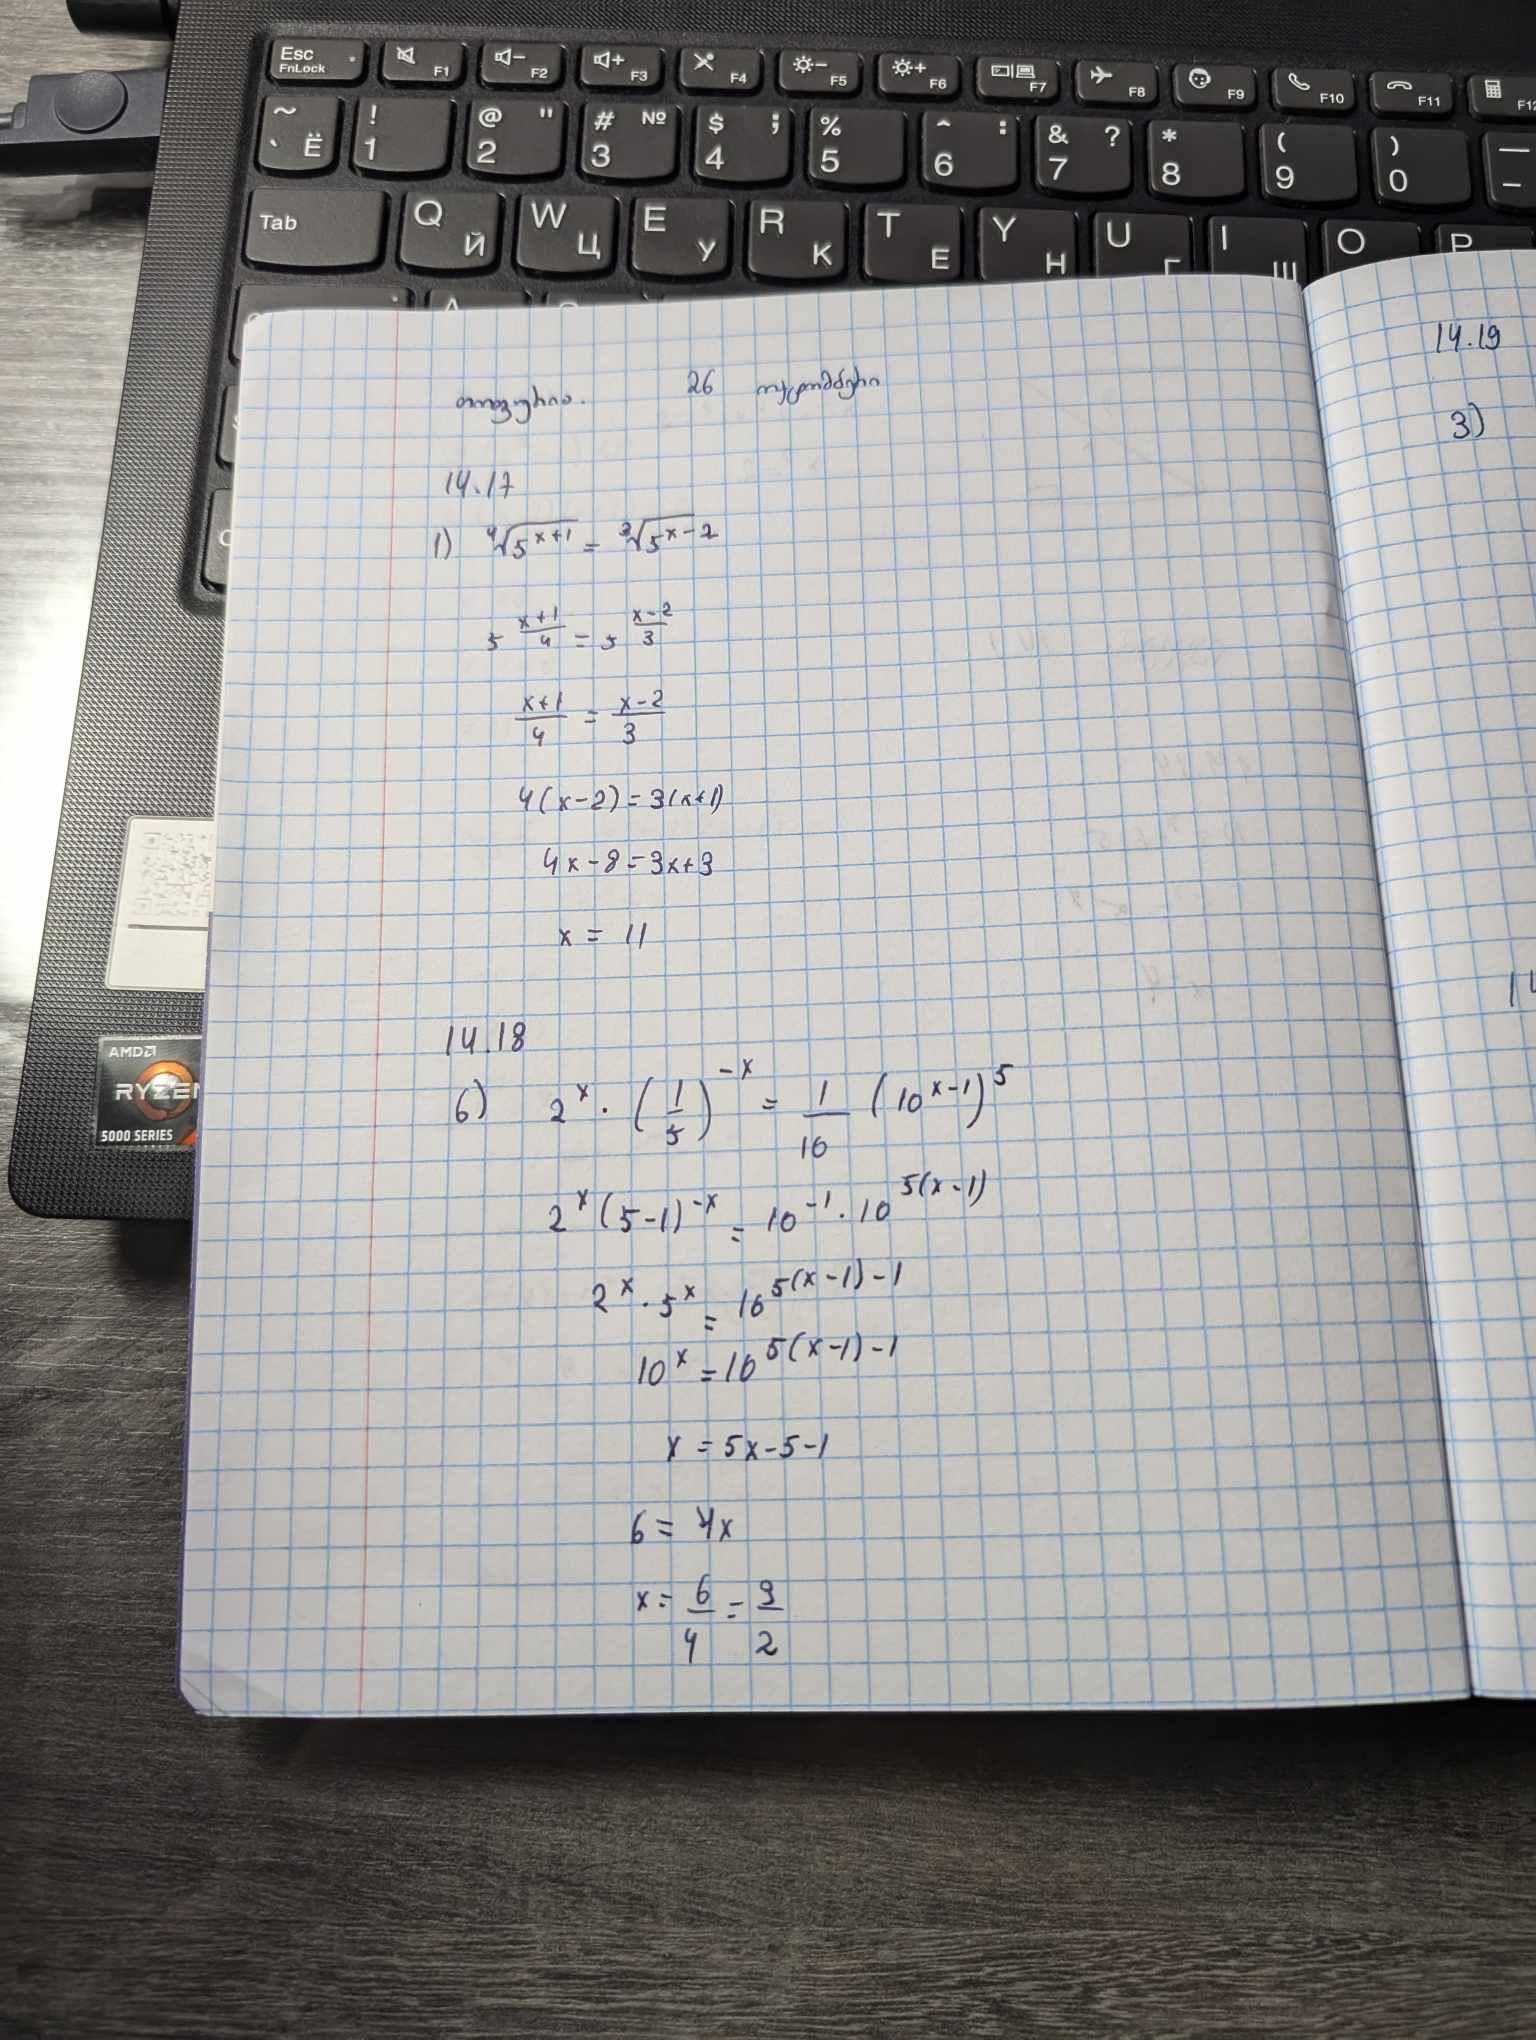 Esc FnLock F1 F2 F3 F4 F5 F6 F7 F8 F9 F10 F11 F12
~ ` Ё ! 1 @ " 2 # № 3 $ ; 4 % 5 ^ : 6 & ? 7 * 8 ( 9 ) 0 — –
Tab Q Й W Ц E У R К T Е Y Н U Г I Ш O P
տնային. 26 դեկտեմբերի
14.17
1) ⁴√5^(x+1) = ³√5^(x-2)
5^((x+1)/4) = 5^((x-2)/3)
(x+1)/4 = (x-2)/3
4(x-2)=3(x+1)
4x-8=3x+3
x = 11
14.18
6) 2^x · (1/5)^(-x) = 1/10 (10^(x-1))^5
2^x (5-1)^(-x) = 10^(-1) · 10^(5(x-1))
2^x · 5^x = 10^(5(x-1)-1)
10^x = 10^(5(x-1)-1)
x = 5x-5-1
6 = 4x
x = 6/4 = 3/2
14.19
3)
14
AMD
RYZEN
5000 SERIES